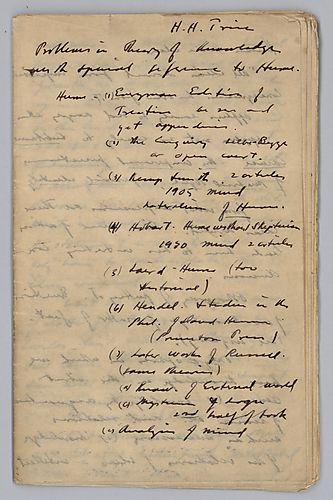 H. H. Price
Problems in Theory of Knowledge
with special reference to Hume.
Hume - (1) Everyman Edition of
Treatise
get appendices.
(2) the Enquiry Selby-Bigge
or open court.
(3) Kemp Smith 2 articles
1905 mind
naturalism of Hume.
(4) Hobart. Hume without Skepticism
1930 mind 2 articles
(5) Laird - Hume (too
historical)
(6) Hendel Studies in the
Phil. of David Hume
(Princeton Press)
(7) Later works of Russell.
(same theories)
(a) Know. of External world
(b) Mysticism & Logic
2nd half of book
(c) Analysis of mind